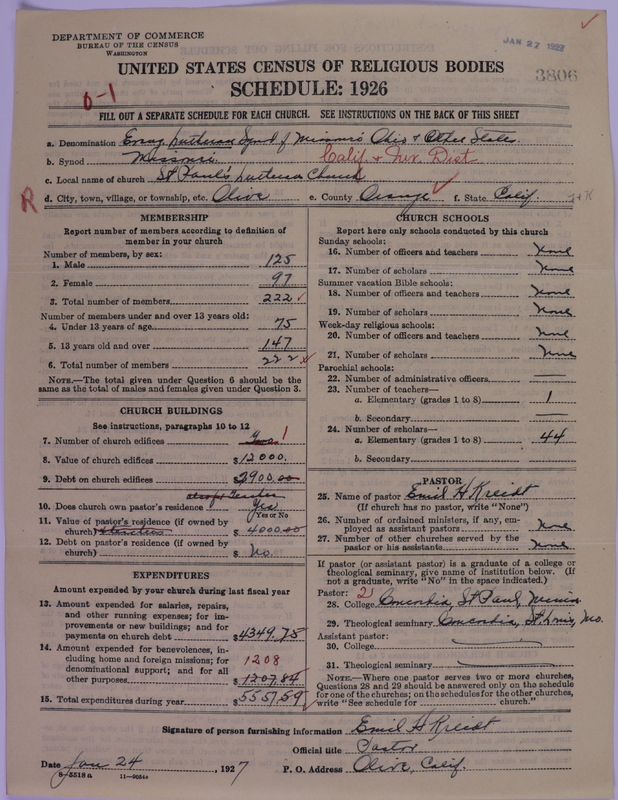 DEPARTMENT OF COMMERCE
BUREAU OF THE CENSUS
WASHINGTON
JAN 27 1927
3806
UNITED STATES CENSUS OF RELIGIOUS BODIES
SCHEDULE: 1926
0-1
FILL OUT A SEPARATE SCHEDULE FOR EACH CHURCH. SEE INSTRUCTIONS ON THE BACK OF THIS SHEET
a. Denomination Evang. Lutheran Synd of Missouri Ohio & Other States.
b. Synod Missouri. Calif. & Nev. Dist.
c. Local name of church St Paul's Lutheran Church
R d. City, town, village, or township, etc. Olive e. County Orange f. State Calif.
MEMBERSHIP
Report number of members according to definition of
member in your church
Number of members, by sex:
1. Male 125
2. Female 97
3. Total number of members 222
Number of members under and over 13 years old:
4. Under 13 years of age 75
5. 13 years old and over 147
6. Total number of members 222
NOTE.—The total given under Question 6 should be the
same as the total of males and females given under Question 3.
CHURCH BUILDINGS
See instructions, paragraphs 10 to 12
7. Number of church edifices 1
8. Value of church edifices $12000.
9. Debt on church edifices $2900.00
also of Teacher
10. Does church own pastor's residence Yes
Yes or No
11. Value of pastor's residence (if owned by
church) & teachers $ 4000.00
12. Debt on pastor's residence (if owned by
church) $ No.
EXPENDITURES
Amount expended by your church during last fiscal year
13. Amount expended for salaries, repairs,
and other running expenses; for im-
provements or new buildings; and for
payments on church debt $4349.75
14. Amount expended for benevolences, in-
cluding home and foreign missions; for 1208
denominational support; and for all
other purposes $1207.84
15. Total expenditures during year $5557.59
CHURCH SCHOOLS
Report here only schools conducted by this church
Sunday schools:
16. Number of officers and teachers None
17. Number of scholars None
Summer vacation Bible schools:
18. Number of officers and teachers None
19. Number of scholars None
Week-day religious schools:
20. Number of officers and teachers None
21. Number of scholars None
Parochial schools:
22. Number of administrative officers —
23. Number of teachers—
a. Elementary (grades 1 to 8) 1
b. Secondary —
24. Number of scholars—
a. Elementary (grades 1 to 8) 44
b. Secondary
PASTOR
25. Name of pastor Emil H Kreidt
(If church has no pastor, write "None")
26. Number of ordained ministers, if any, em-
ployed as assistant pastors None
27. Number of other churches served by the
pastor or his assistants None
If pastor (or assistant pastor) is a graduate of a college or
theological seminary, give name of institution below. (If
not a graduate, write "No" in the space indicated.)
Pastor: 2
28. College Concordia, St Paul, Minn
29. Theological seminary Concordia, St. Louis, Mo.
Assistant pastor:
30. College
31. Theological seminary
NOTE.—Where one pastor serves two or more churches,
Questions 28 and 29 should be answered only on the schedule
for one of the churches; on the schedules for the other churches,
write "See schedule for church."
Signature of person furnishing information Emil H Kreidt
Official title Pastor
Date Jan 24, 1927 P. O. Address Olive, Calif.
8-5518 a. 11-9034a